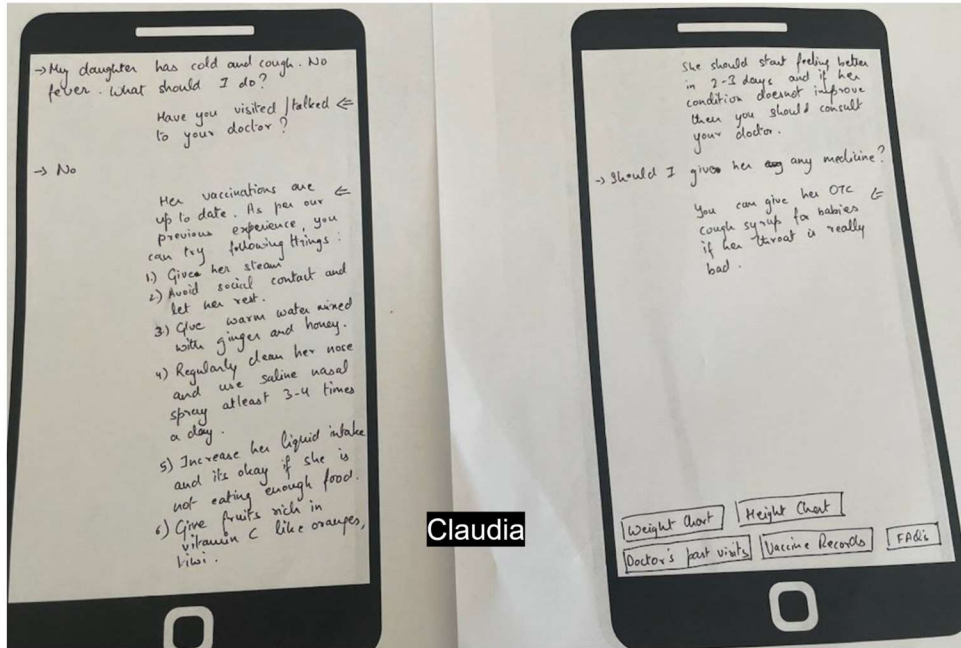 → My daughter has cold and cough. No
fever. What should I do?
Have you visited/talked ⇐
to your doctor?
→ No
Her vaccinations are ⇐
up to date. As per our
previous experience, you
can try following things:
1.) Give her steam
2) Avoid social contact and
let her rest.
3) Give warm water mixed
with ginger and honey.
4) Regularly clean her nose
and use saline nasal
spray atleast 3-4 times
a day.
5) Increase her liquid intake
and its okay if she is
not eating enough food.
6) Give fruits rich in
vitamin C like oranges,
kiwi.
She should start feeling better
in 2-3 days and if her
condition doesnot improve
then you should consult
your doctor.
→ Should I give her any medicine?
You can give her OTC ⇐
cough syrup for babies
if her throat is really
bad.
Weight Chart Height Chart
Doctor's past visits Vaccine Records FAQ's
Claudia